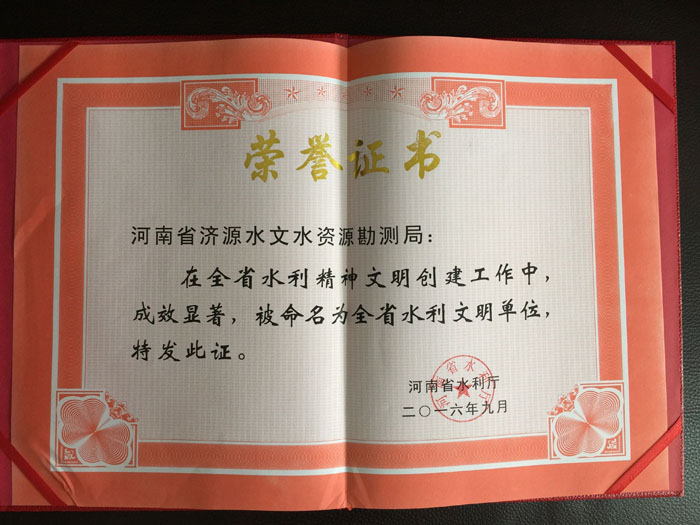 荣誉证书
河南省济源水文水资源勘测局：
在全省水利精神文明创建工作中，
成效显著，被命名为全省水利文明单位，
特发此证。
河南省水利厅
河南省水利厅
二〇一六年九月